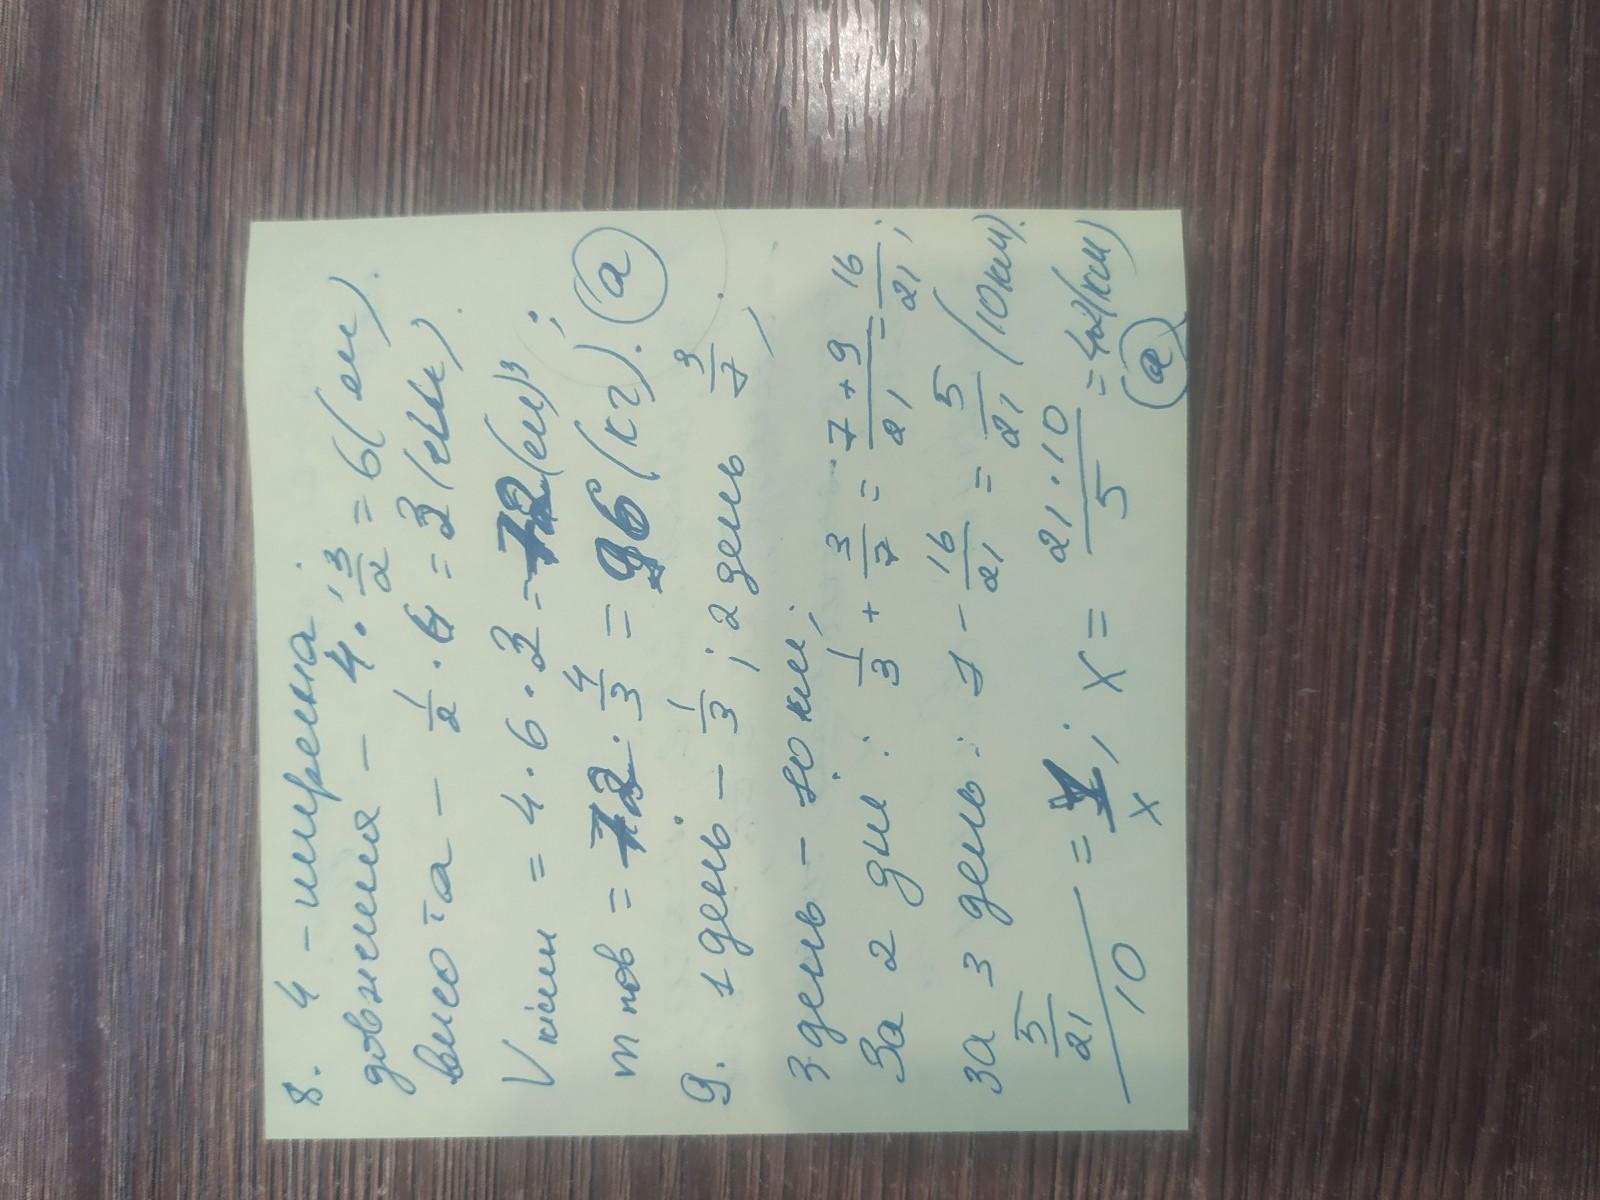 8. 4 - ширена;
довжина - 4 · 3/2 = 6 (см).
висота - 1/2 · 6 = 3 (см)
V кімн = 4 · 6 · 3 = 72 (см)³;
m пов = 72 · 4/3 = 96 (кг). (а)
9. 1 день - 1/3 ; 2 день 3/7,
3 день - 10 км;
За 2 дні : 1/3 + 3/7 = 7+9/21 = 16/21;
За 3 день: 1 - 16/21 = 5/21 (10 км).
5/21/10 = 1/x; x = 21·10/5 = 42 (км)
(а)